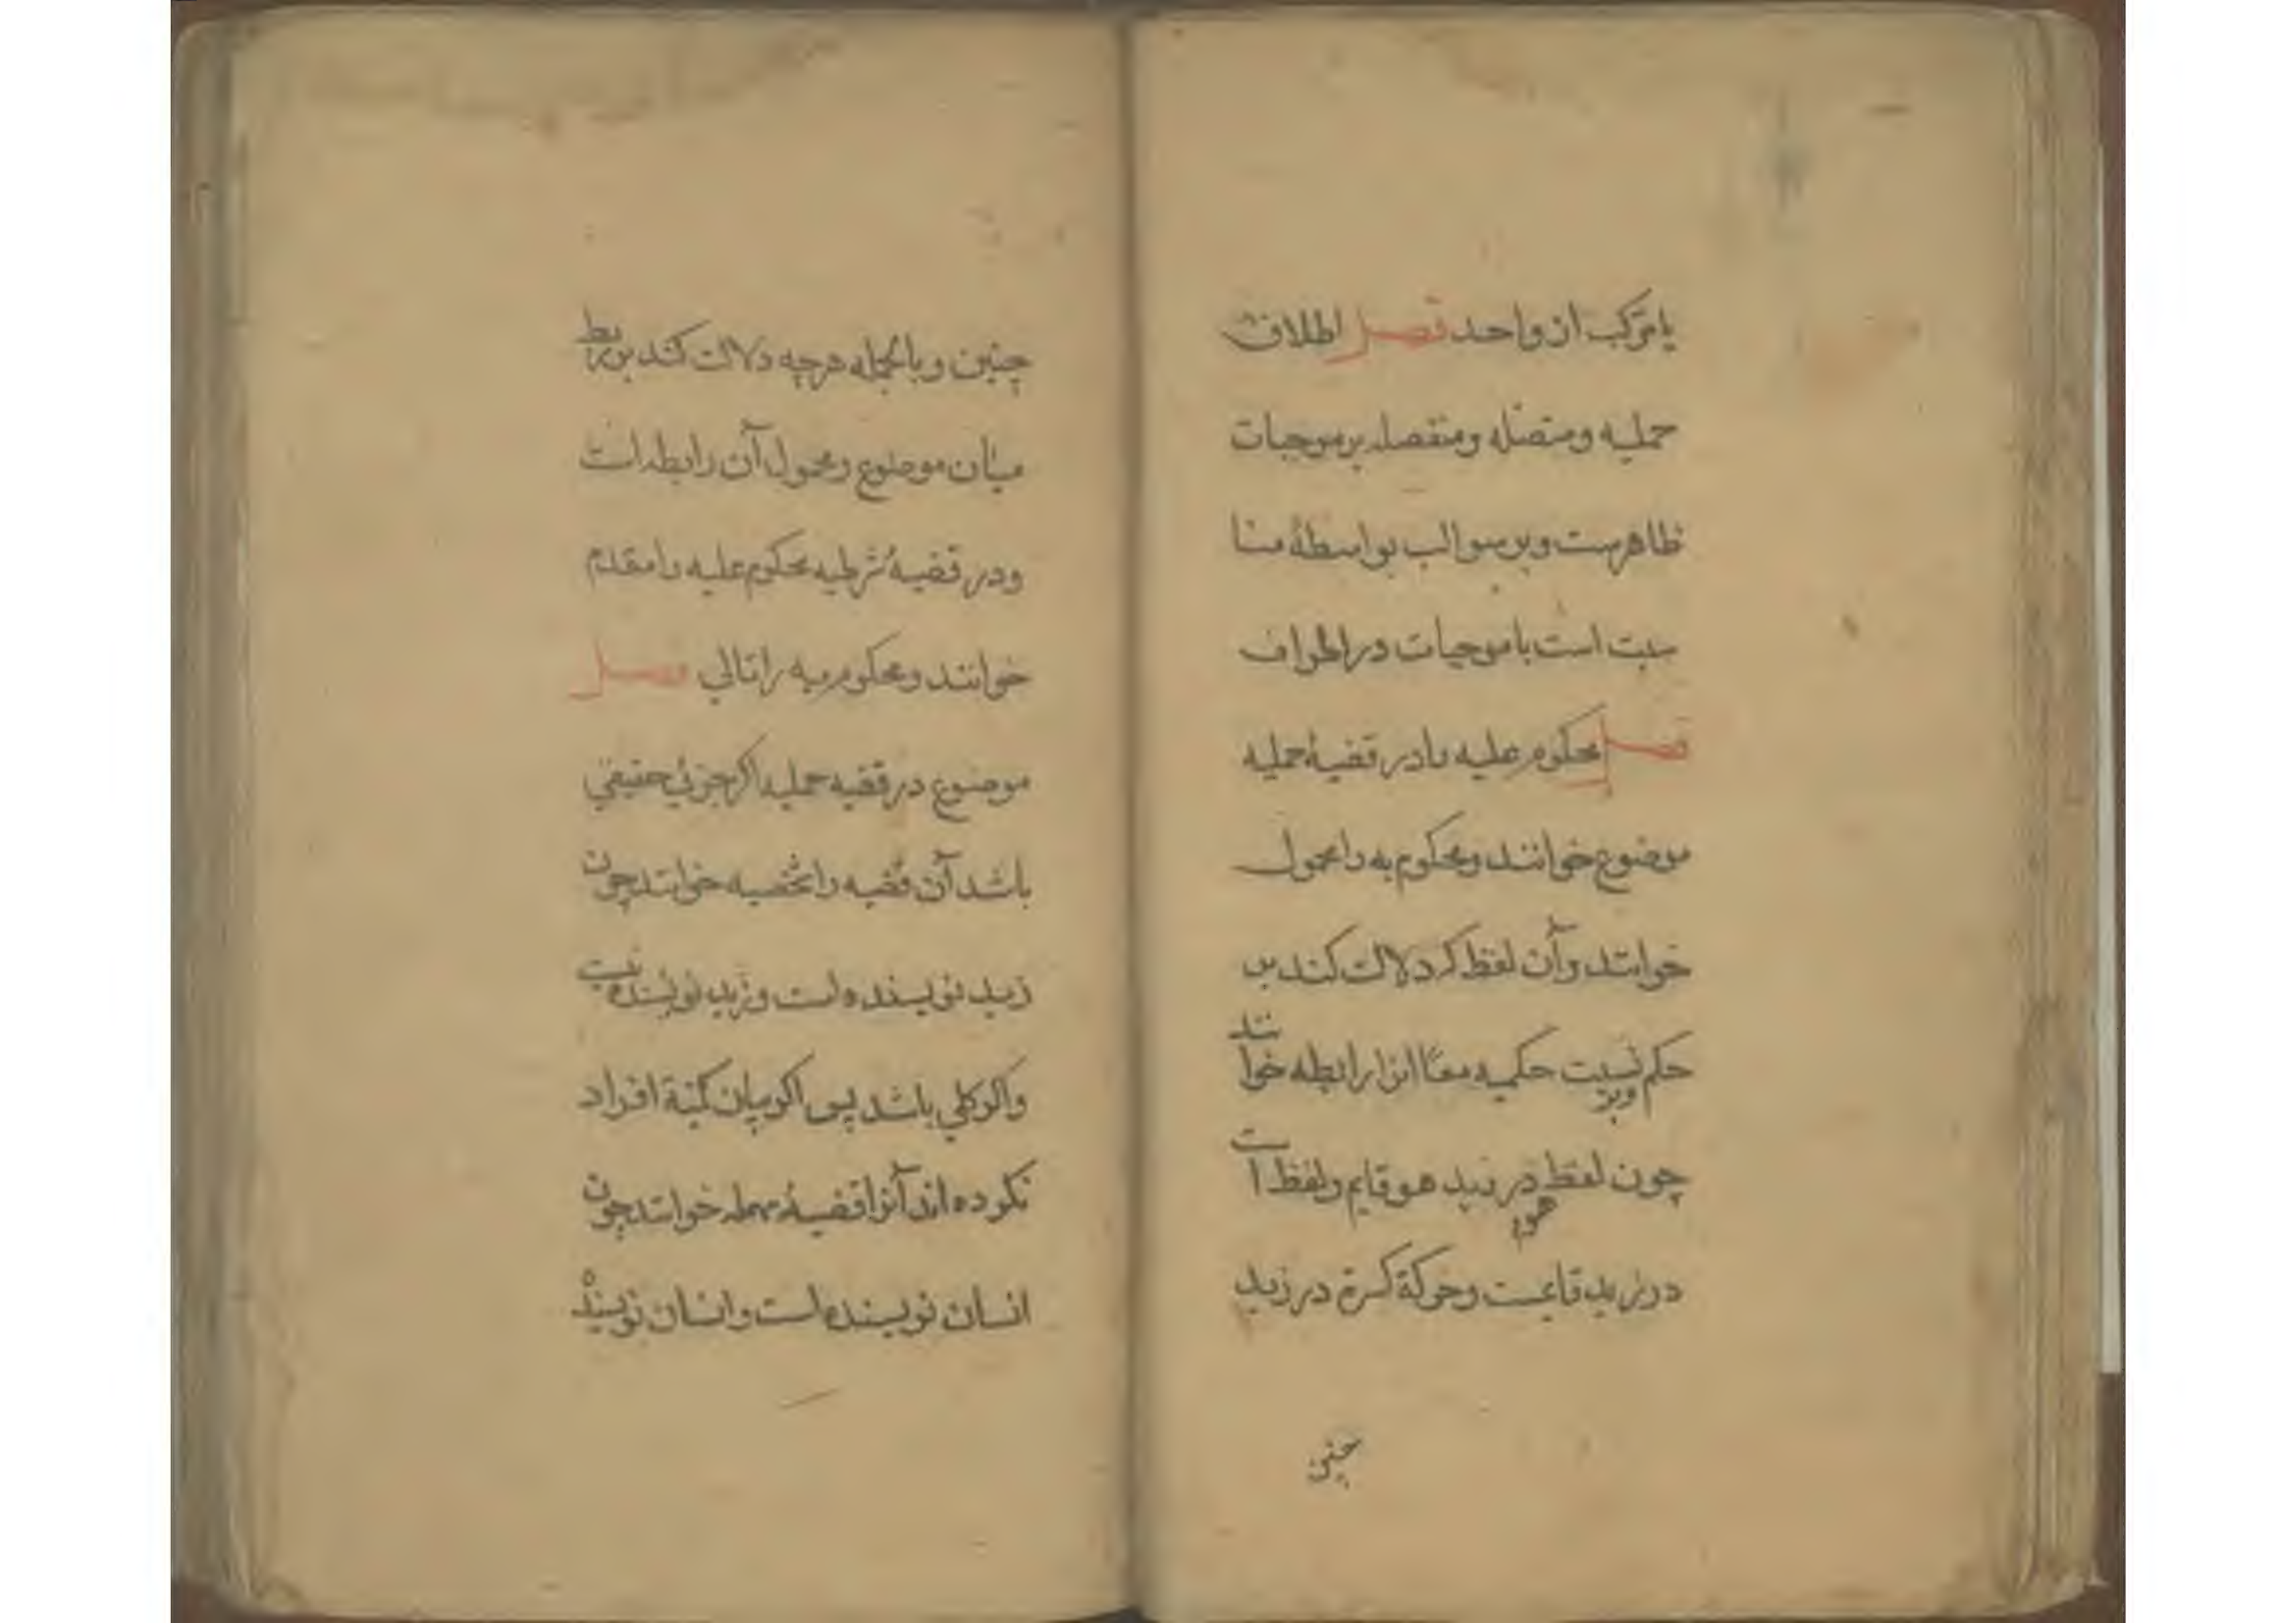 یا مرکب از واحد فصل اطلاق
حملیه و متصله و منفصله بر موجبات
ظاهرست و بر سوالب بواسطهٔ منا
سبت است با موجبات در اطراف
فصل محکوم علیه را در قضیهٔ حملیه
موضوع خوانند و محکوم به را محمول
خوانند و آن لفظ که دلالت کند بر
حکم و بر نسبت حکمیه معًا انرا رابطه خوانند
چون لفظ هو در زید هو قایم و لفظ است
در زید قایمست و حرکة کسره در زید
چنین
چنین و بالجمله هرچه دلالت کند بر ربط
میان موضوع و محمول آن رابطه است
و در قضیهٔ شرطیه محکوم علیه را مقدم
خوانند و محکوم به را تالي فصل
موضوع در قضیه حملیه اکر جزئي حقیقي
باشد آن قضیه را شخصیه خوانند چون
زید نویسنده است و زید نویسنده نیست
و اکر کلي باشد پس اکر بیان کمیة افراد
نکرده اند آنرا قضیهٔ مهمله خوانند چون
انسان نویسنده است و انسان نویسنده